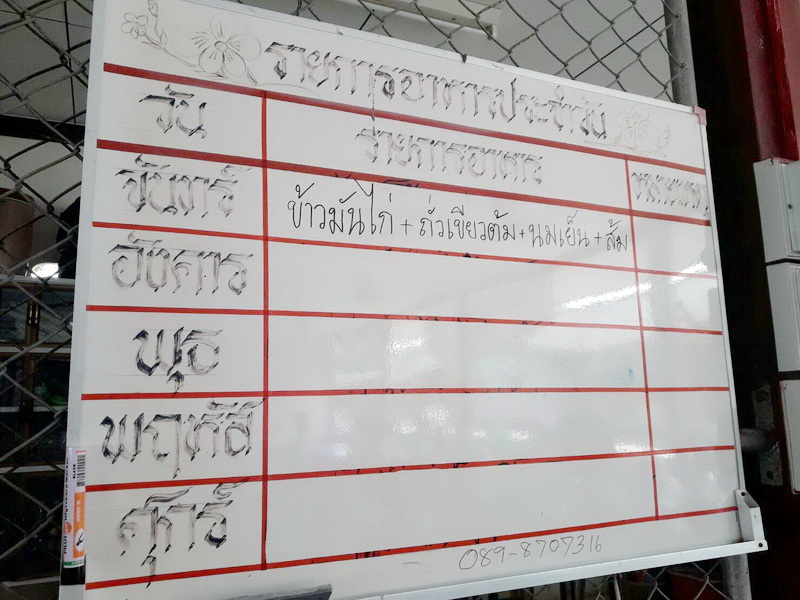 รายการอาหารประจำวัน
วัน รายการอาหาร หมายเหตุ
จันทร์ ข้าวมันไก่ + ถั่วเขียวต้ม + นมเย็น + ส้ม
อังคาร
พุธ
พฤหัส
ศุกร์
089-8707316
PILOT